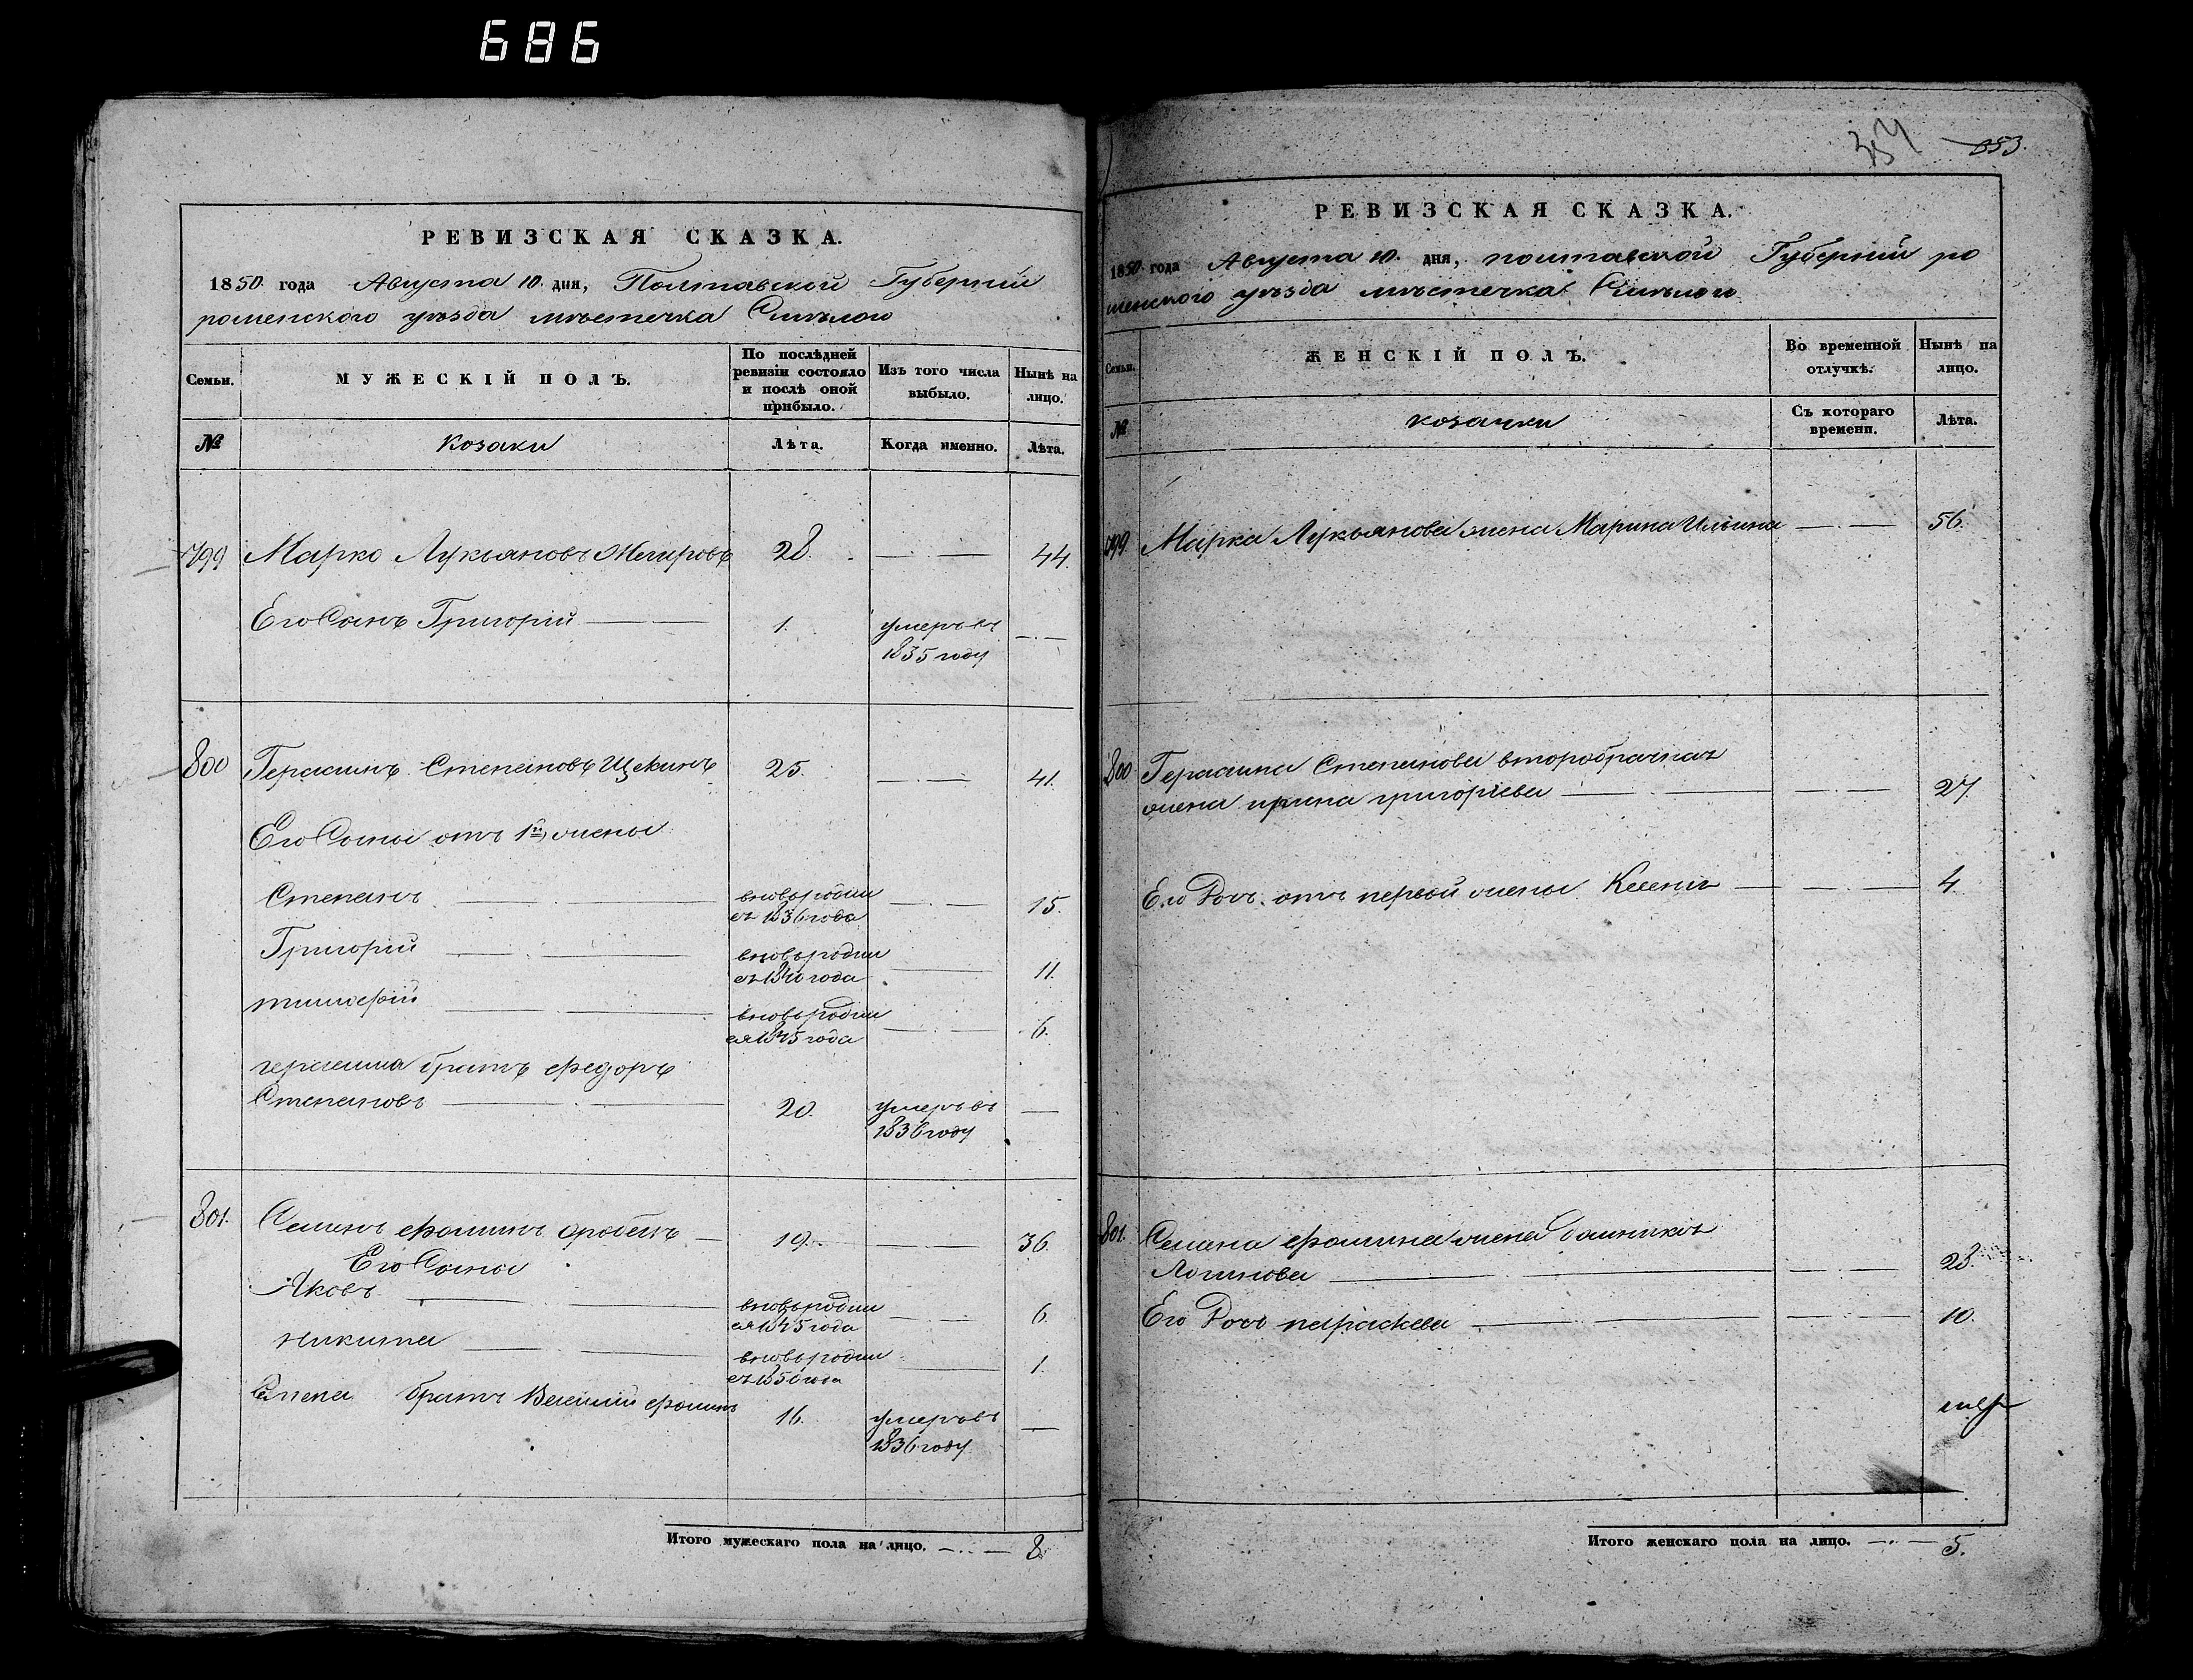 686
РЕВИЗСКАЯ СКАЗКА.
1850 года Августа 10. дня, Полтавской Губернии
роменского уѣзда мѣстечка Смѣлого
Семьи.
МУЖЕСКІЙ ПОЛЪ.
По послѣдней ревизіи состояло и послѣ оной прибыло.
Изъ того числа выбыло.
Нынѣ на лицо.
№
Козаки
Лѣта.
Когда именно.
Лѣта.
799 Марко Лукьяновъ 28. 44.
Его Сынъ Григорій 1. умеръ въ
1835 году
800 Герасимъ Степановъ 25. 41.
Его Сыны отъ 1й жены
Степанъ вновь родил
ся 1836 года 15.
Григорій вновь родил
ся 1840 года 11.
тимофей вновь родил
ся 1845 года 6.
герасима братъ федоръ
Степановъ 20. умеръ въ
1836 году
801. Семенъ фоминъ 19. 36.
Его Сыны
Яковъ вновь родил
ся 1845 года 6.
никита вновь родил
ся 1850 года 1.
братъ Василий фоминъ 16. умеръ въ
1836 году
Итого мужескаго пола на лицо. 8.
353.
РЕВИЗСКАЯ СКАЗКА.
1850 года Августа 10. дня, полтавской Губернии ро
менского уѣзда мѣстечка Смѣлого
Семьи.
ЖЕНСКІЙ ПОЛЪ.
Во временной отлучкѣ.
Нынѣ на лицо.
№
козачки
Съ котораго времени.
Лѣта.
799 Марка Лукьянова жена Марина Ильина 56.
800 Герасима Степанова второбрачная
жена ирина григорьева 27.
Его Доч. отъ первой жены Ксения 4
801. Семена фомина жена
Логинова 28.
Его Дочь параскева 10.
Итого женскаго пола на лицо. 5.